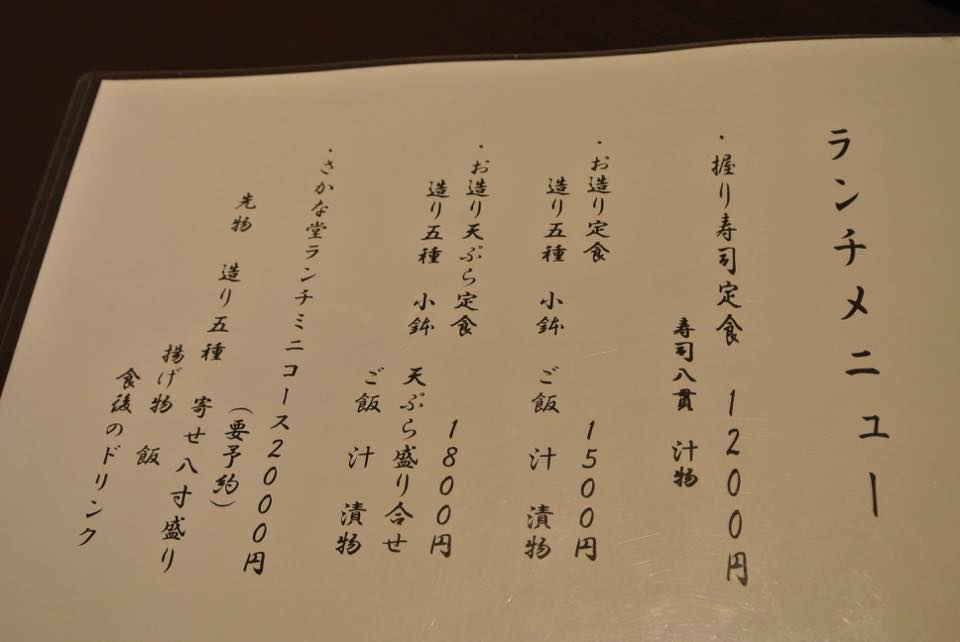 ランチメニュー
・握り寿司定食 1200円
寿司八貫 汁物
・お造り定食 1500円
造り五種 小鉢 ご飯 汁 漬物
・お造り天ぷら定食 1800円
造り五種 小鉢 天ぷら盛り合せ
ご飯 汁 漬物
・さかな堂ランチミニコース2000円
(要予約)
先物 造り五種 寄せ八寸盛り
揚げ物 飯
食後のドリンク